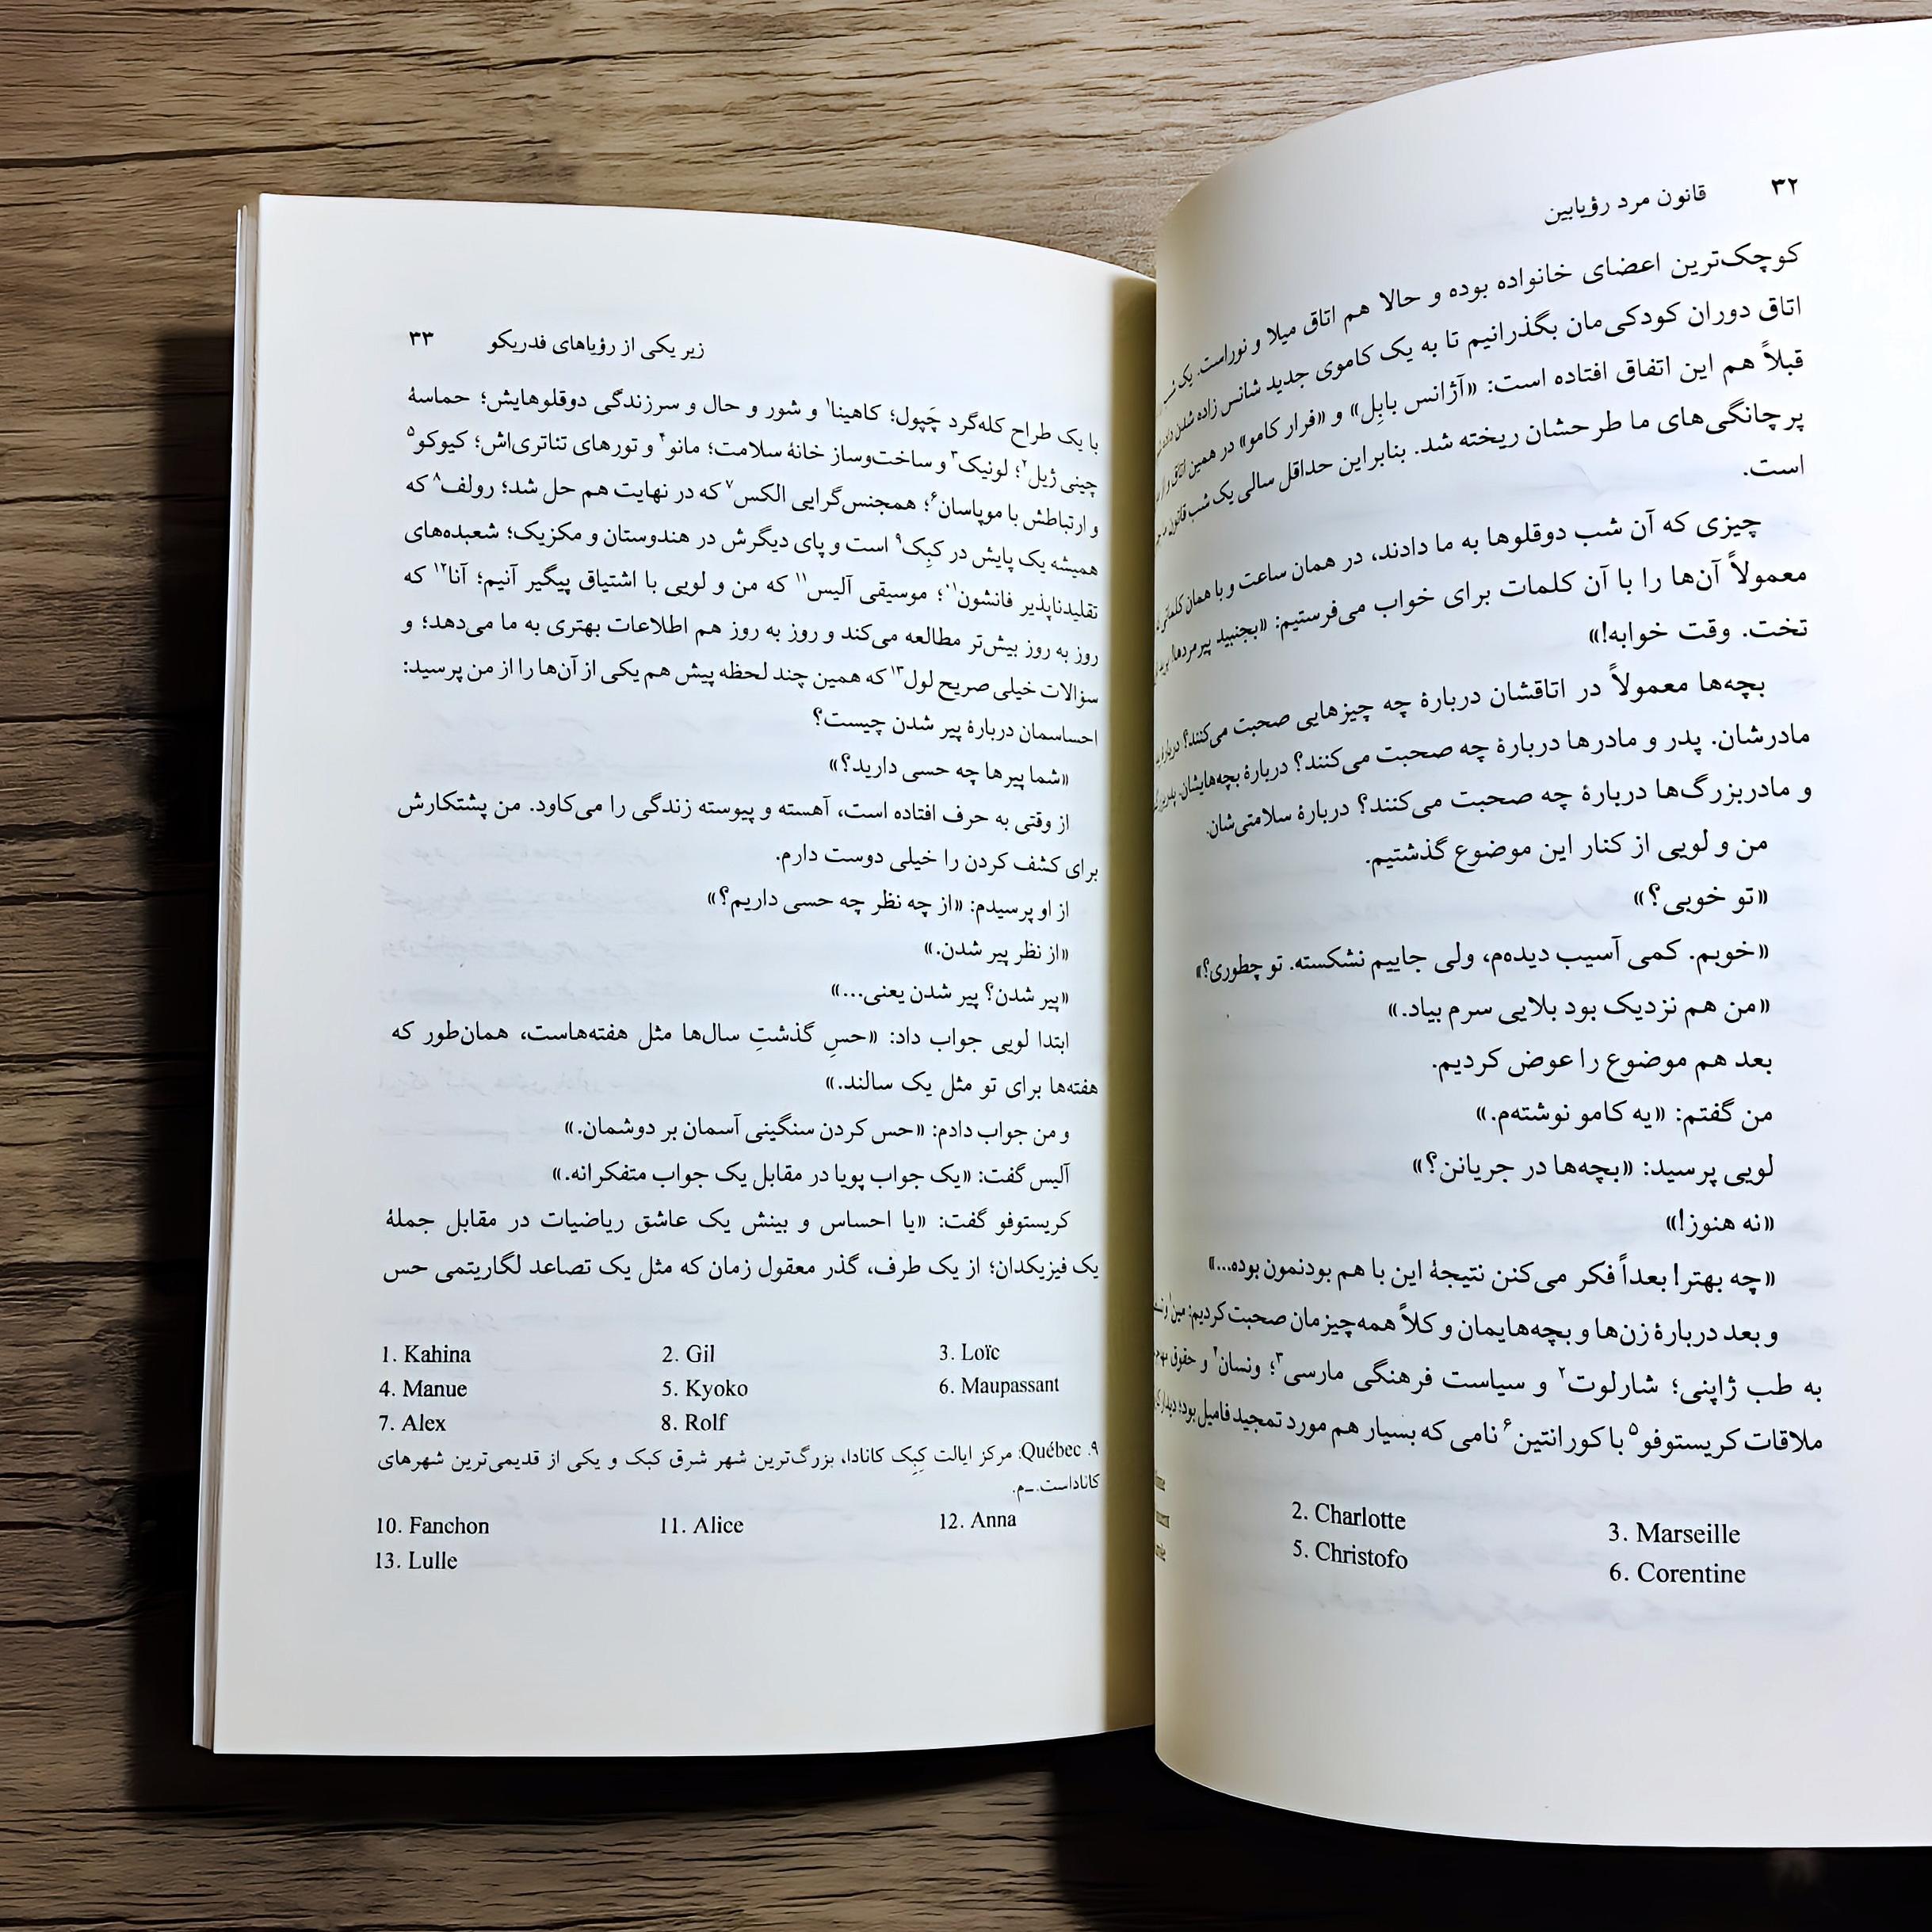 ۳۲ قانون مرد رؤیابین
کوچک‌ترین اعضای خانواده بوده و حالا هم اتاق میلا و نوراست. یک شب
اتاق دوران کودکی‌مان بگذرانیم تا به یک کاموی جدید شانس زاده شدن
قبلاً هم این اتفاق افتاده است: «آژانس بابِل» و «فرار کامو» در همین اتاق و از
پرچانگی‌های ما طرحشان ریخته شد. بنابراین حداقل سالی یک شب قانون
است.
چیزی که آن شب دوقلوها به ما دادند، در همان ساعت و با همان کلماتی
معمولاً آن‌ها را با آن کلمات برای خواب می‌فرستیم: «بجنبید پیرمردها!
تخت. وقت خوابه!»
بچه‌ها معمولاً در اتاقشان دربارهٔ چه چیزهایی صحبت می‌کنند؟
مادرشان. پدر و مادرها دربارهٔ چه صحبت می‌کنند؟ دربارهٔ بچه‌هایشان.
و مادربزرگ‌ها دربارهٔ چه صحبت می‌کنند؟ دربارهٔ سلامتی‌شان.
من و لویی از کنار این موضوع گذشتیم.
«تو خوبی؟»
«خوبم. کمی آسیب دیده‌م، ولی جاییم نشکسته. تو چطوری؟»
«من هم نزدیک بود بلایی سرم بیاد.»
بعد هم موضوع را عوض کردیم.
من گفتم: «یه کامو نوشته‌م.»
لویی پرسید: «بچه‌ها در جریانن؟»
«نه هنوز!»
«چه بهتر! بعداً فکر می‌کنن نتیجهٔ این با هم بودنمون بوده...»
و بعد دربارهٔ زن‌ها و بچه‌هایمان و کلاً همه‌چیزمان صحبت کردیم: مین۱
به طب ژاپنی؛ شارلوت۲ و سیاست فرهنگی مارسی۳؛ ونسان۴ و حقوق
ملاقات کریستوفو۵ با کورانتین۶ نامی که بسیار هم مورد تمجید فامیل بود؛ دیدار
2. Charlotte 3. Marseille
5. Christofo 6. Corentine
زیر یکی از رؤیاهای فدریکو ۳۳
با یک طراح کله‌گرد چَپول؛ کاهینا۱ و شور و حال و سرزندگی دوقلوهایش؛ حماسهٔ
چینی ژیل۲؛ لونیک۳ و ساخت‌وساز خانهٔ سلامت؛ مانو۴ و تورهای تئاتری‌اش؛ کیوکو۵
و ارتباطش با موپاسان۶؛ همجنس‌گرایی الکس۷ که در نهایت هم حل شد؛ رولف۸ که
همیشه یک پایش در کبِک۹ است و پای دیگرش در هندوستان و مکزیک؛ شعبده‌های
تقلیدناپذیر فانشون۱۰؛ موسیقی آلیس۱۱ که من و لویی با اشتیاق پیگیر آنیم؛ آنا۱۲ که
روز به روز بیش‌تر مطالعه می‌کند و روز به روز هم اطلاعات بهتری به ما می‌دهد؛ و
سؤالات خیلی صریح لول۱۳ که همین چند لحظه پیش هم یکی از آن‌ها را از من پرسید:
احساسمان دربارهٔ پیر شدن چیست؟
«شما پیرها چه حسی دارید؟»
از وقتی به حرف افتاده است، آهسته و پیوسته زندگی را می‌کاود. من پشتکارش
برای کشف کردن را خیلی دوست دارم.
از او پرسیدم: «از چه نظر چه حسی داریم؟»
«از نظر پیر شدن.»
«پیر شدن؟ پیر شدن یعنی...»
ابتدا لویی جواب داد: «حسِ گذشتِ سال‌ها مثل هفته‌هاست، همان‌طور که
هفته‌ها برای تو مثل یک سالند.»
و من جواب دادم: «حس کردن سنگینی آسمان بر دوشمان.»
آلیس گفت: «یک جواب پویا در مقابل یک جواب متفکرانه.»
کریستوفو گفت: «یا احساس و بینش یک عاشق ریاضیات در مقابل جملهٔ
یک فیزیکدان؛ از یک طرف، گذر معقول زمان که مثل یک تصاعد لگاریتمی حس
1. Kahina 2. Gil 3. Loïc
4. Manue 5. Kyoko 6. Maupassant
7. Alex 8. Rolf
۹. Québec: مرکز ایالت کِبِک کانادا، بزرگ‌ترین شهر شرق کبک و یکی از قدیمی‌ترین شهرهای
کاناداست. ـ م.
10. Fanchon 11. Alice 12. Anna
13. Lulle